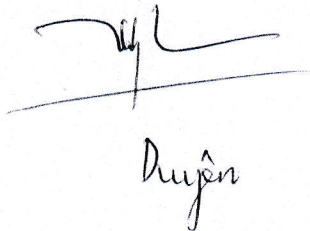 Duyên